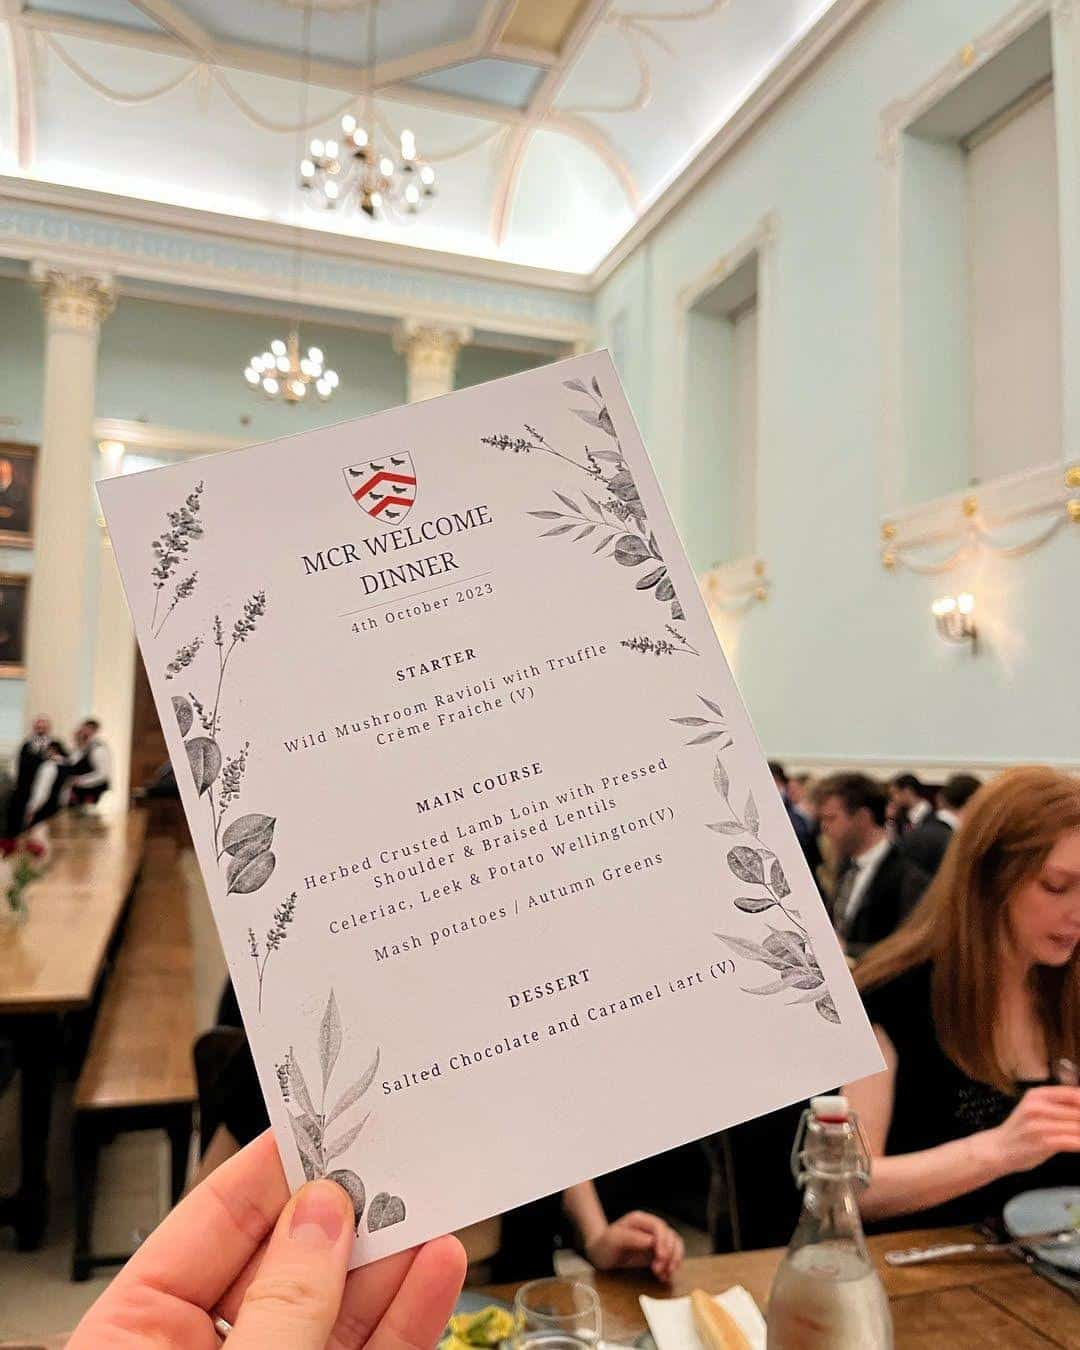 MCR WELCOME
DINNER
4th October 2023
STARTER
Wild Mushroom Ravioli with Truffle
Crème Fraiche (V)
MAIN COURSE
Herbed Crusted Lamb Loin with Pressed
Shoulder & Braised Lentils
Celeriac, Leek & Potato Wellington(V)
Mash potatoes / Autumn Greens
DESSERT
Salted Chocolate and Caramel tart (V)